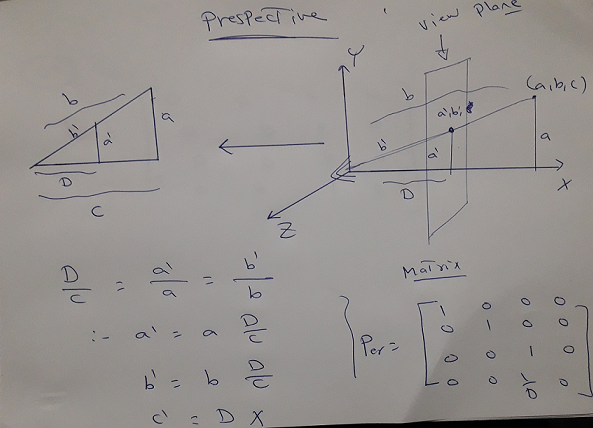 Prespective
view plane
Y
b
(a,b,c)
a',b',
b'
a'
a
D
X
Z
b
b'
a'
a
D
C
D/C = a'/a = b'/b
:- a' = a D/C
b' = b D/C
c' = D X
Matrix
Per =
1 0 0 0
0 1 0 0
0 0 1 0
0 0 1/D 0